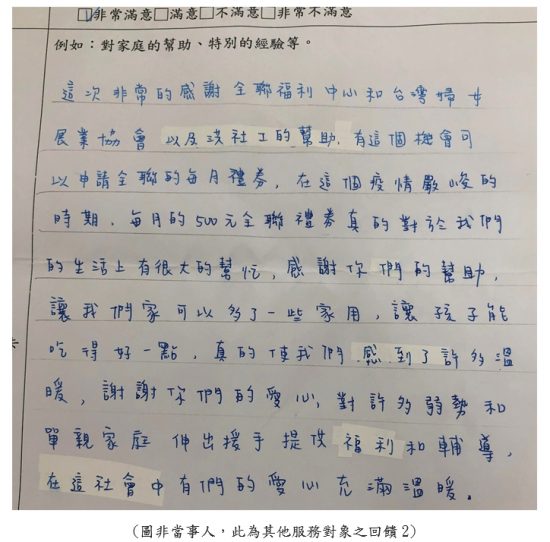 ☑非常滿意□滿意□不滿意□非常不滿意
例如：對家庭的幫助、特別的經驗等。
這次非常的感謝全聯福利中心和台灣婦女
展業協會以及洪社工的幫助,有這個機會可
以申請全聯的每月禮券，在這個疫情嚴峻的
時期，每月的500元全聯禮券真的對於我們
的生活上有很大的幫忙，感謝你們的幫助，
讓我們家可以多了一些家用，讓孩子能
吃得好一點，真的使我們感到了許多溫
暖，謝謝你們的愛心，對許多弱勢和
單親家庭伸出援手提供福利和輔導，
在這社會中有們的愛心充滿溫暖。
（圖非當事人，此為其他服務對象之回饋2）